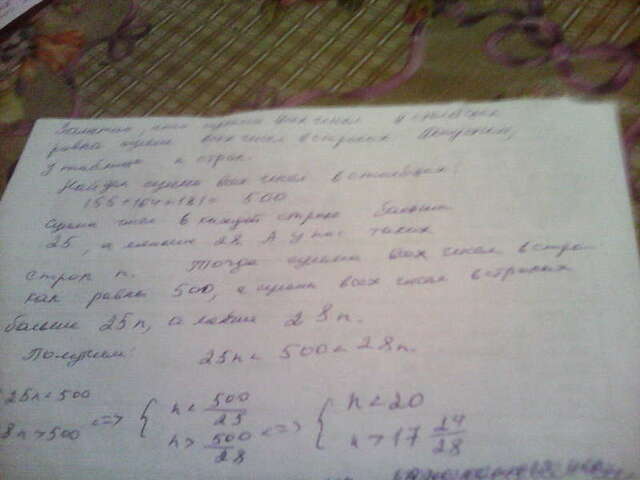 Заметим, что сумма всех чисел в столбцах
равна сумме всех чисел в строках. Допустим,
у таблицы n строк.
Найдем сумму всех чисел в столбцах:
155+164+181= 500
Сумма чисел в каждой строке больше
25, а меньше 28. А у нас таких
строк n. Тогда сумма всех чисел в стро-
ках равна 500, а сумма всех чисел в строках
больше 25n, а меньше 28n.
Получим: 25n < 500 < 28n.
25n < 500 <=> { n < 500/25 <=> { n < 20
8n > 500 n > 500/28 n > 17 24/28